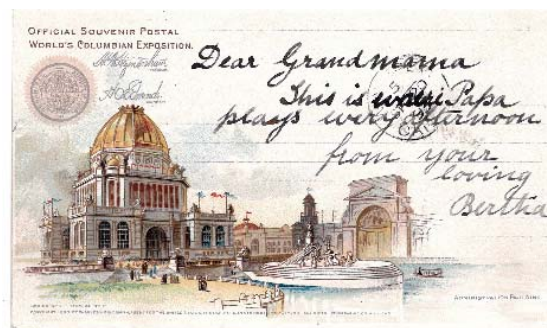 OFFICIAL SOUVENIR POSTAL
WORLD'S COLUMBIAN EXPOSITION.
Dear Grandmama
This is where Papa
plays every afternoon
from your
loving
Bertha
ADMINISTRATION BUILDING.